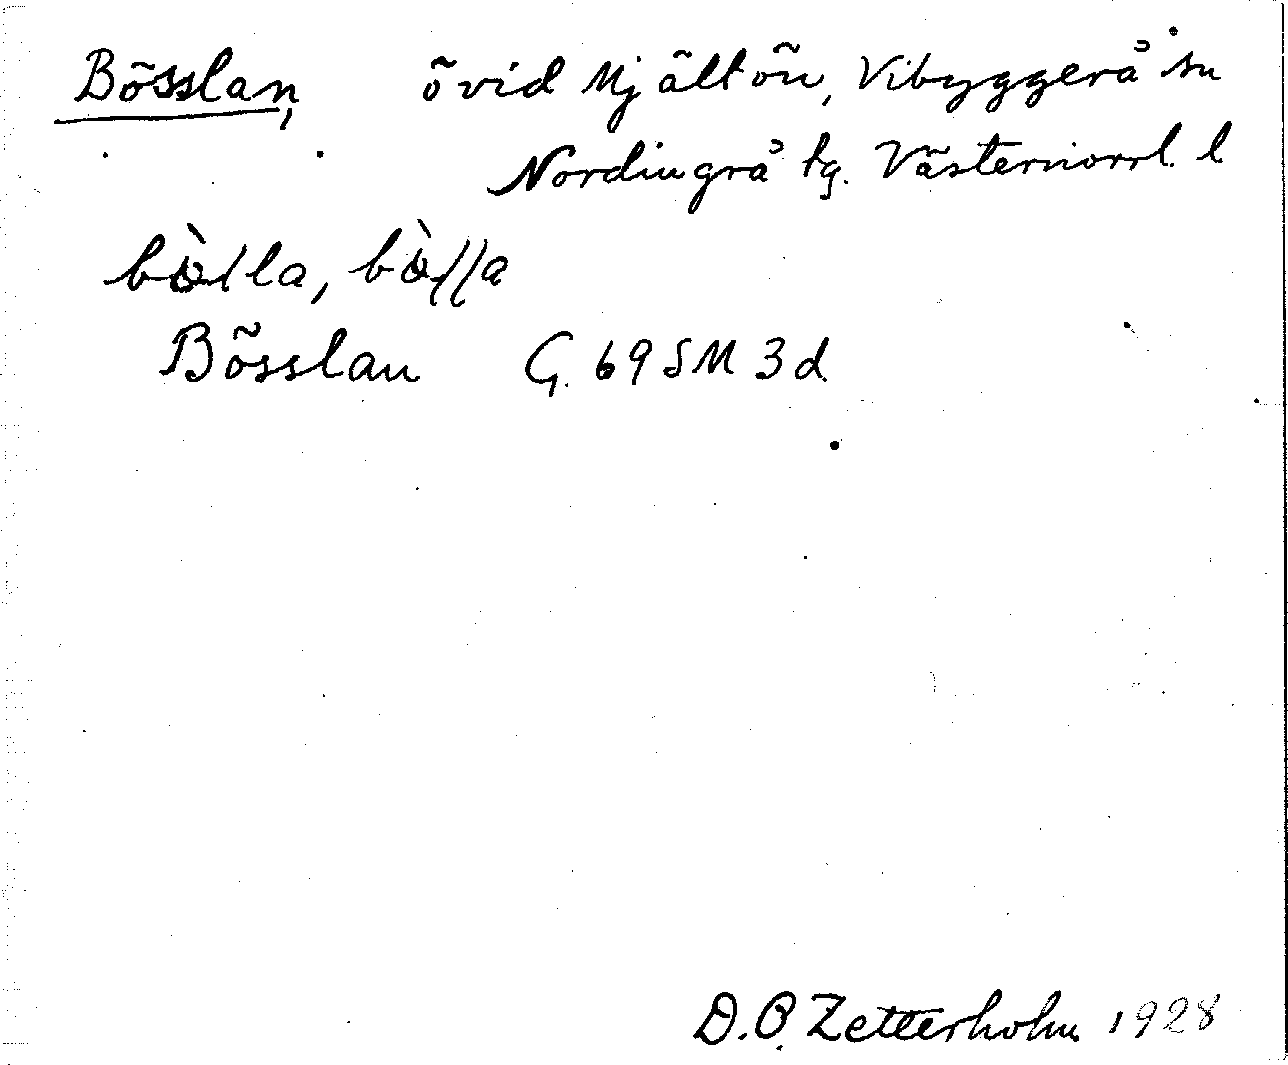 Bösslan, ö vid Mjältön, Vibyggerå sn
Nordingrå tg. Västernorrl. l
Bösslan G. 69 SM 3 d
D. O. Zetterholm 1928